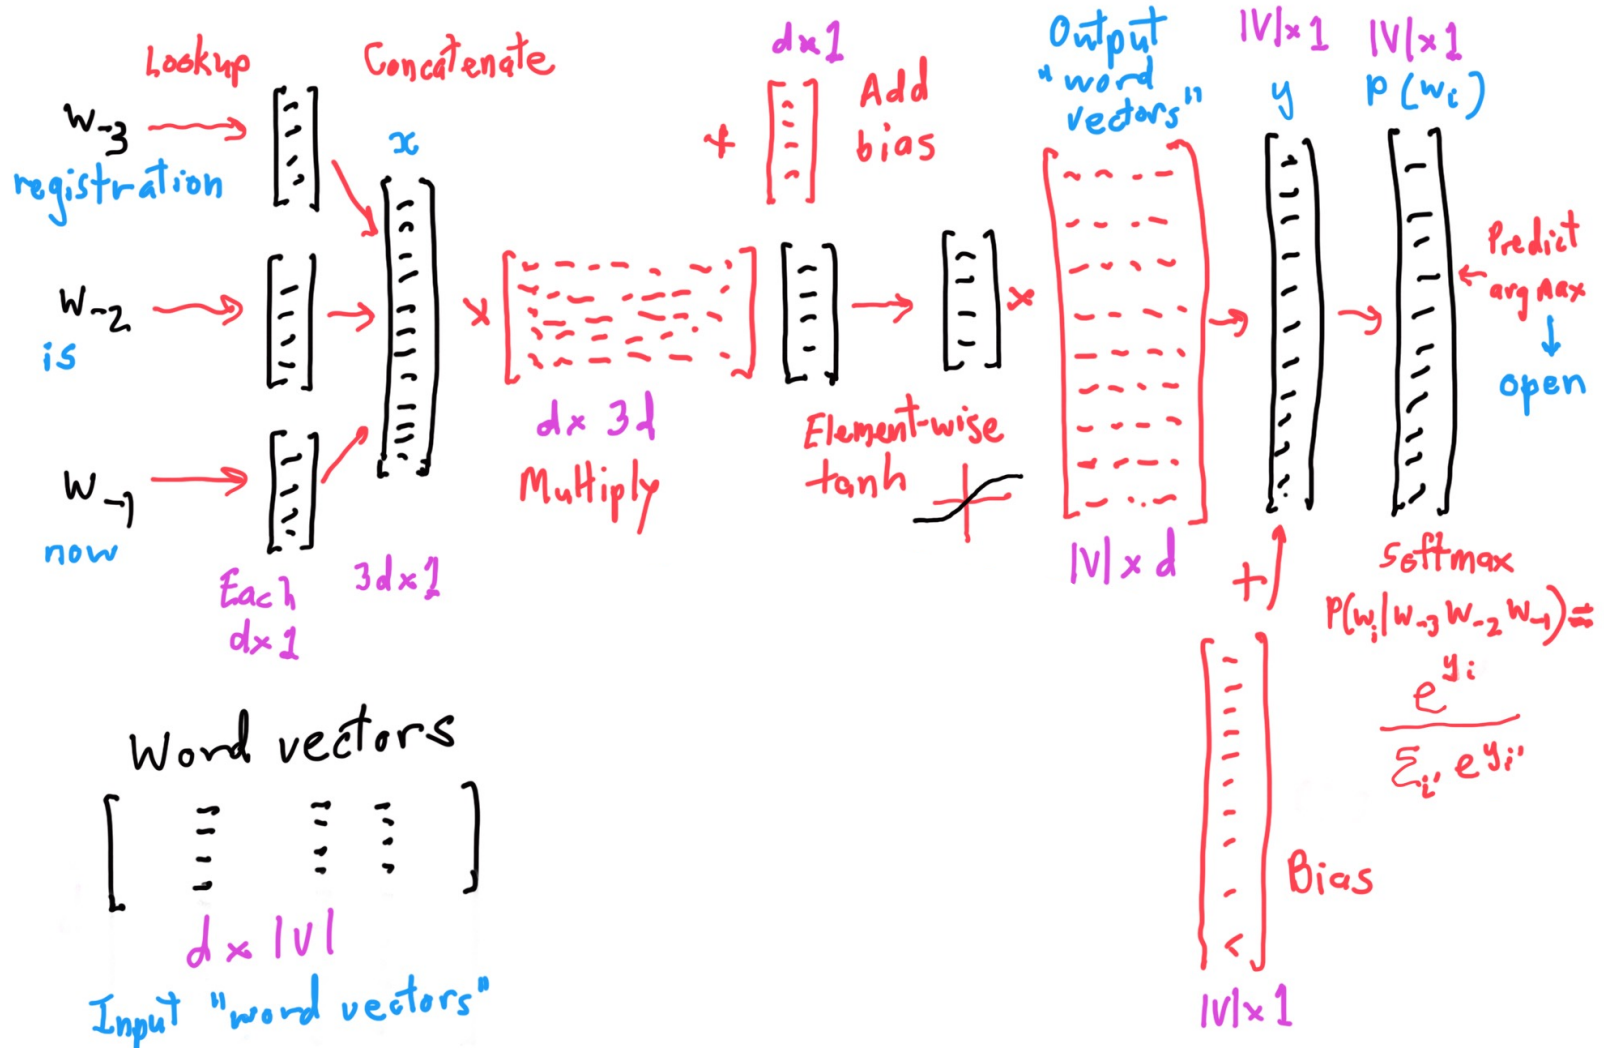 Lookup
Concatenate
W-3
registration
W-2
is
W-1
now
Each
d×1
x
3d×1
×
d× 3d
Multiply
+
d×1
Add
bias
Element-wise
tanh
×
Output
"word
vectors"
|V|× d
|V|×1
y
+
Bias
|V|×1
|V|×1
P(wi)
Predict
argmax
open
Softmax
P(wi|w-3 w-2 w-1)=
e^yi
Σi' e^yi'
Word vectors
d × |V|
Input "word vectors"